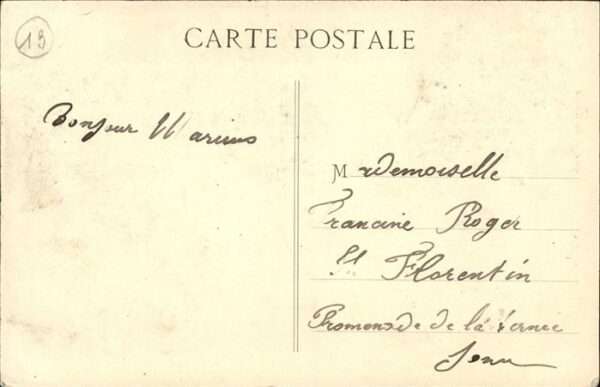 13
CARTE POSTALE
Bonjour Marius
Mademoiselle
Francine Roger
St Florentin
Promenade de la